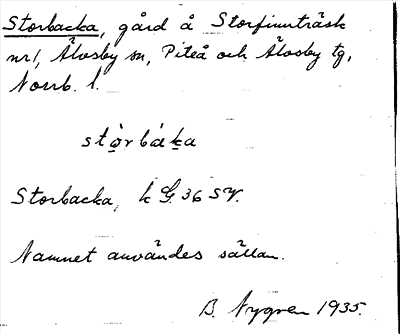 Storbacka, gård å Storfinnträsk
nr 1, Älvsby sn, Piteå och Älvsby tg,
Norrb. l.
stò̠rbàka
Storbacka, k G. 36 SV.
Namnet användes sällan.
B. Nygren 1935.